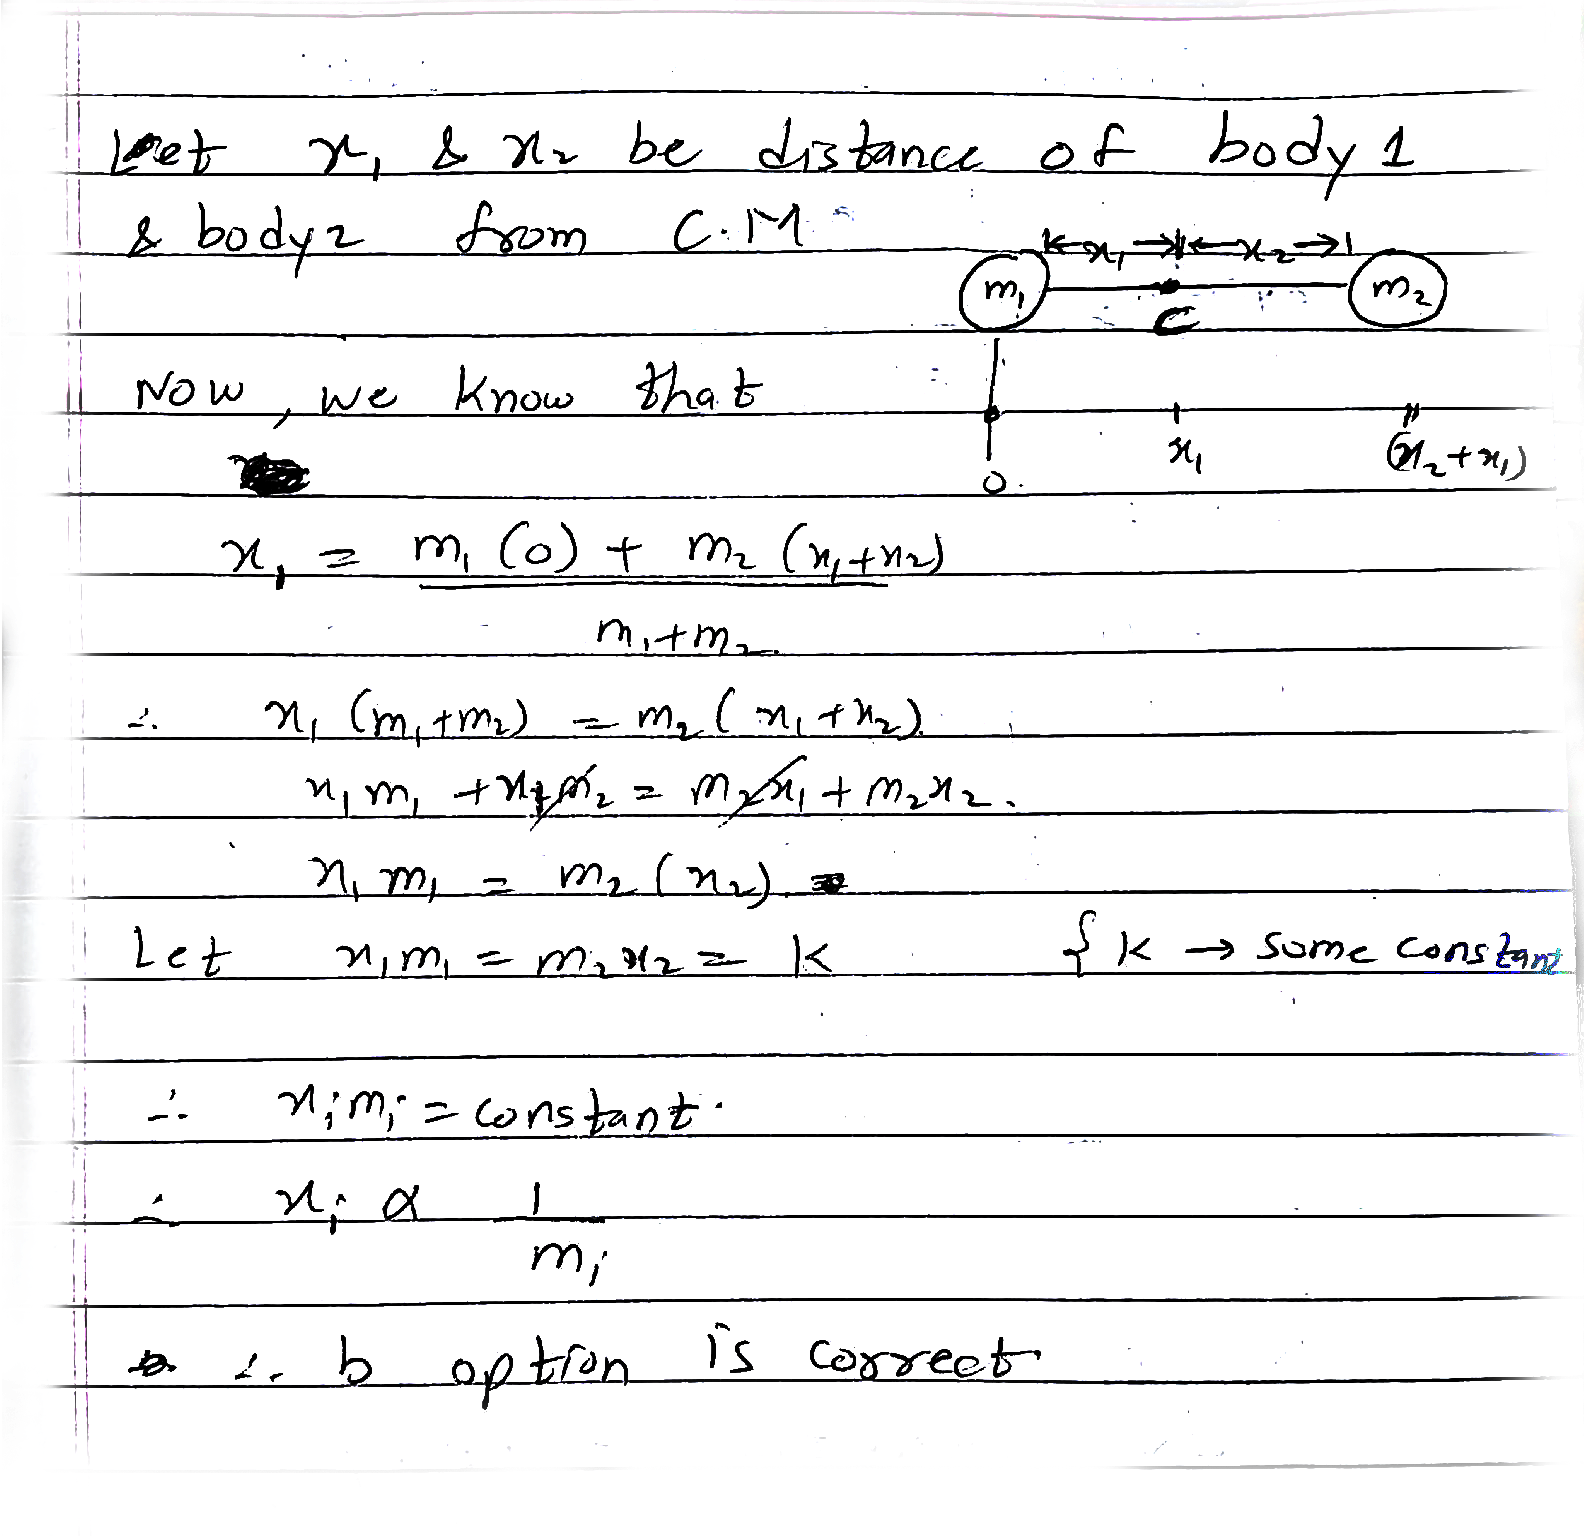 Let x₁ & x₂ be distance of body 1
& body 2 from C.M
x₁ x₂
m₁ m₂
C
Now, we know that
0 x₁ (x₂+x₁)
x₁ = m₁(0) + m₂(x₁+x₂)
m₁+m₂
∴ x₁(m₁+m₂) = m₂(x₁+x₂)
x₁m₁ + x₁m₂ = m₂x₁ + m₂x₂.
x₁m₁ = m₂(x₂)
Let x₁m₁ = m₂x₂ = k { k → some constant
∴ xᵢmᵢ = constant.
∴ xᵢ α 1
mᵢ
∴ b option is correct